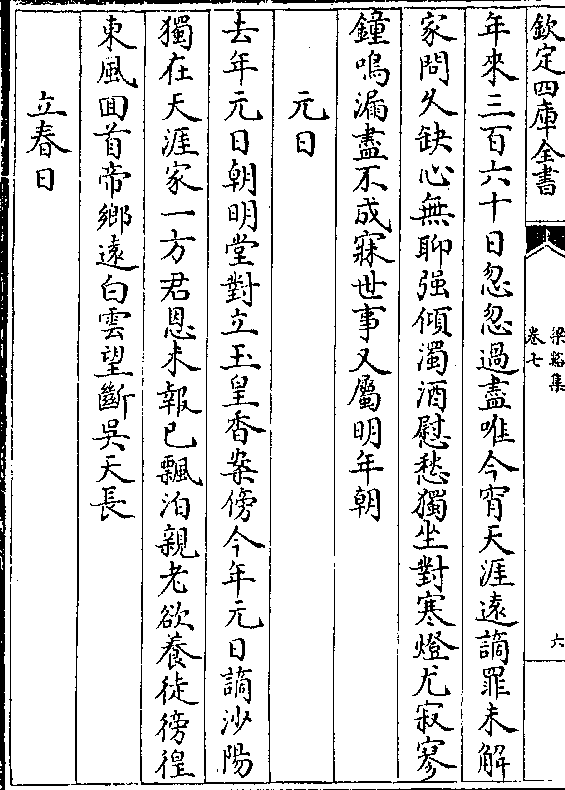 欽定四庫全書
梁谿集
卷七
六
年來三百六十日忽忽過盡唯今宵天涯遠謫罪未解
家問久缺心無聊强傾濁酒慰愁獨坐對寒燈尤寂寥
鐘鳴漏盡不成寐世事又屬明年朝
元日
去年元日朝明堂對立玉皇香案傍今年元日謫沙陽
獨在天涯家一方君恩未報已飄泊親老欲養徒徬徨
東風回首帝鄉遠白雲望斷吳天長
立春日